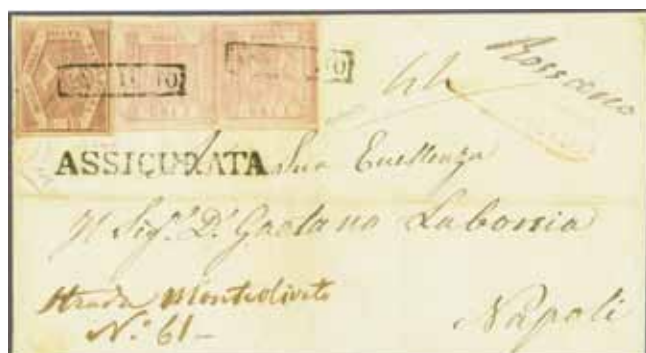 ANNULLATO
Rossano
ASSICURATA
A Sua Eccellenza
Il Sig.r D. Gaetano Labonia
Strada Monteoliveto
N.o 61
Napoli